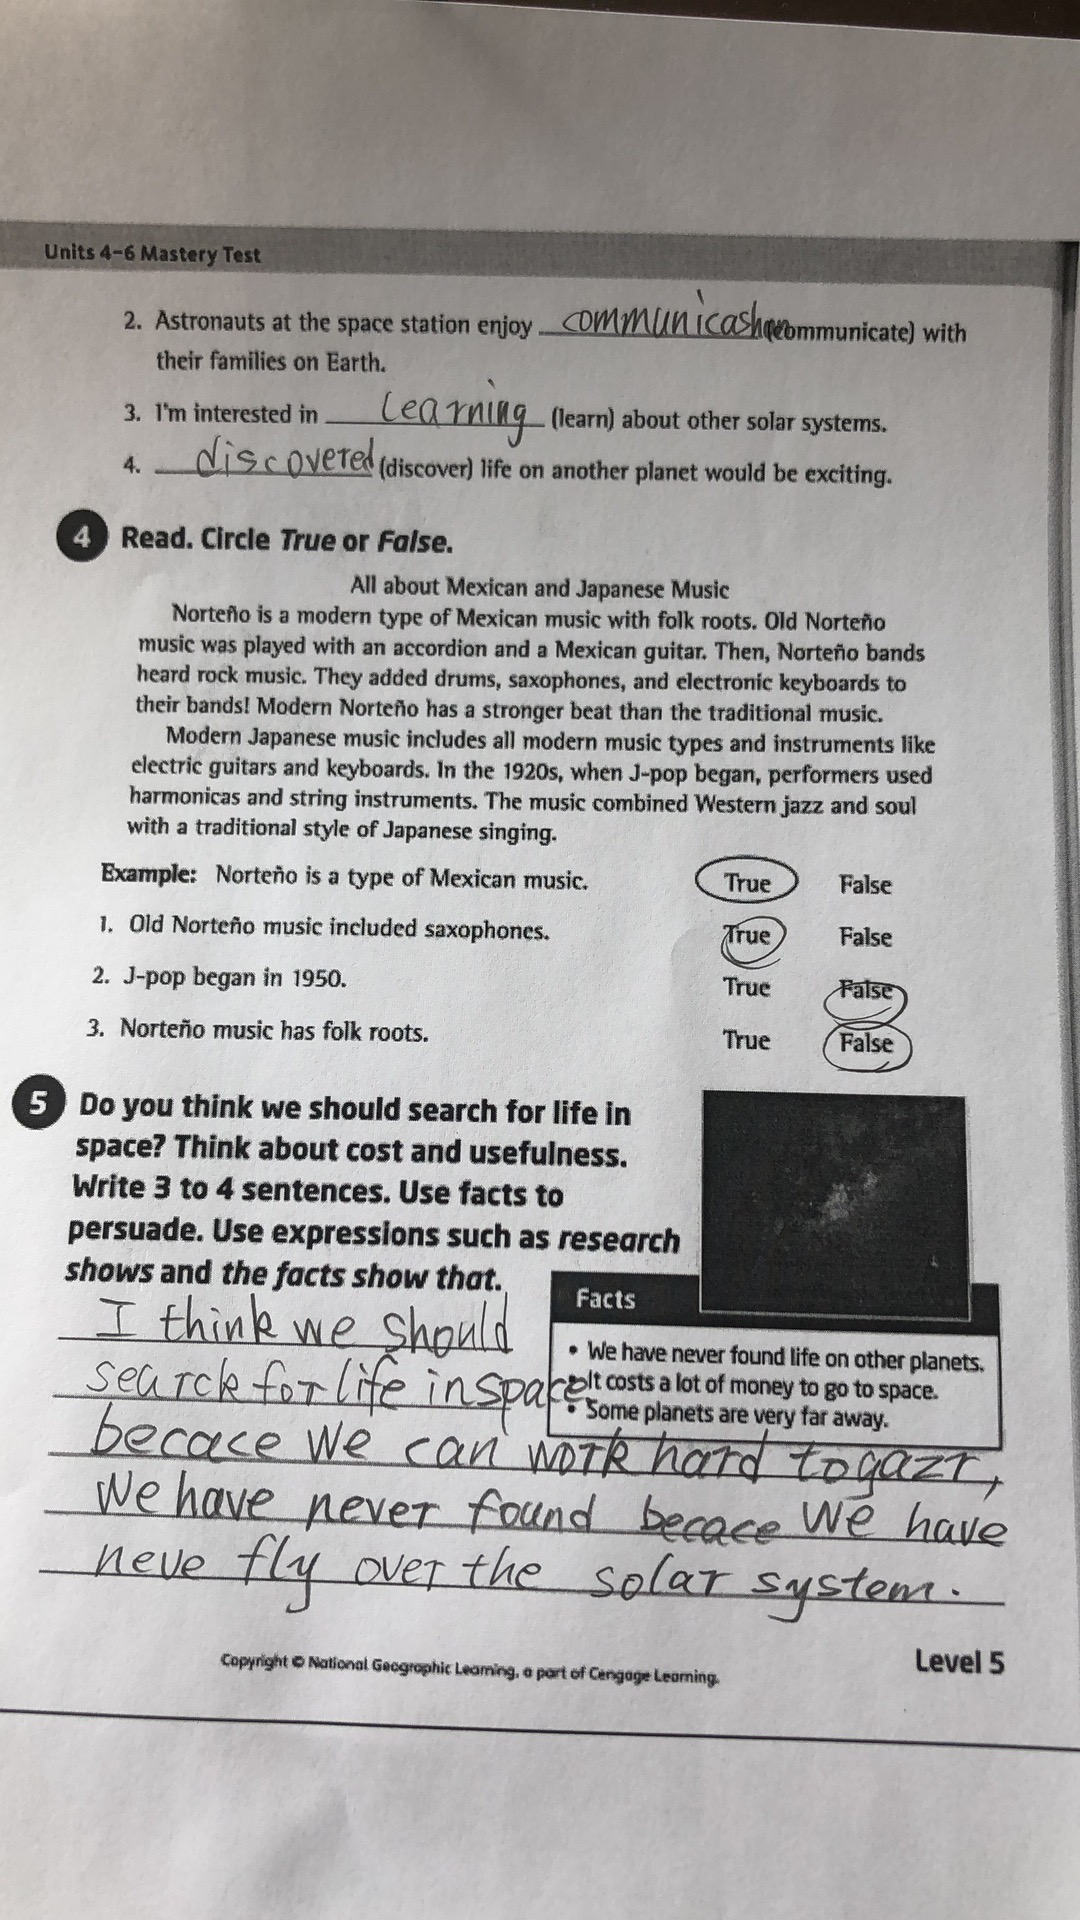 Units 4–6 Mastery Test
2. Astronauts at the space station enjoy communicashon (communicate) with
their families on Earth.
3. I'm interested in learning (learn) about other solar systems.
4. discovered (discover) life on another planet would be exciting.
4 Read. Circle True or False.
All about Mexican and Japanese Music
Norteño is a modern type of Mexican music with folk roots. Old Norteño
music was played with an accordion and a Mexican guitar. Then, Norteño bands
heard rock music. They added drums, saxophones, and electronic keyboards to
their bands! Modern Norteño has a stronger beat than the traditional music.
Modern Japanese music includes all modern music types and instruments like
electric guitars and keyboards. In the 1920s, when J-pop began, performers used
harmonicas and string instruments. The music combined Western jazz and soul
with a traditional style of Japanese singing.
Example: Norteño is a type of Mexican music. True False
1. Old Norteño music included saxophones. True False
2. J-pop began in 1950. True False
3. Norteño music has folk roots. True False
5 Do you think we should search for life in
space? Think about cost and usefulness.
Write 3 to 4 sentences. Use facts to
persuade. Use expressions such as research
shows and the facts show that.
Facts
• We have never found life on other planets.
• It costs a lot of money to go to space.
• Some planets are very far away.
I think we should
searck for life in space
becace we can work hard togazr,
We have never found becace we have
neve fly over the solar system.
Copyright © National Geographic Learning, a part of Cengage Learning.
Level 5